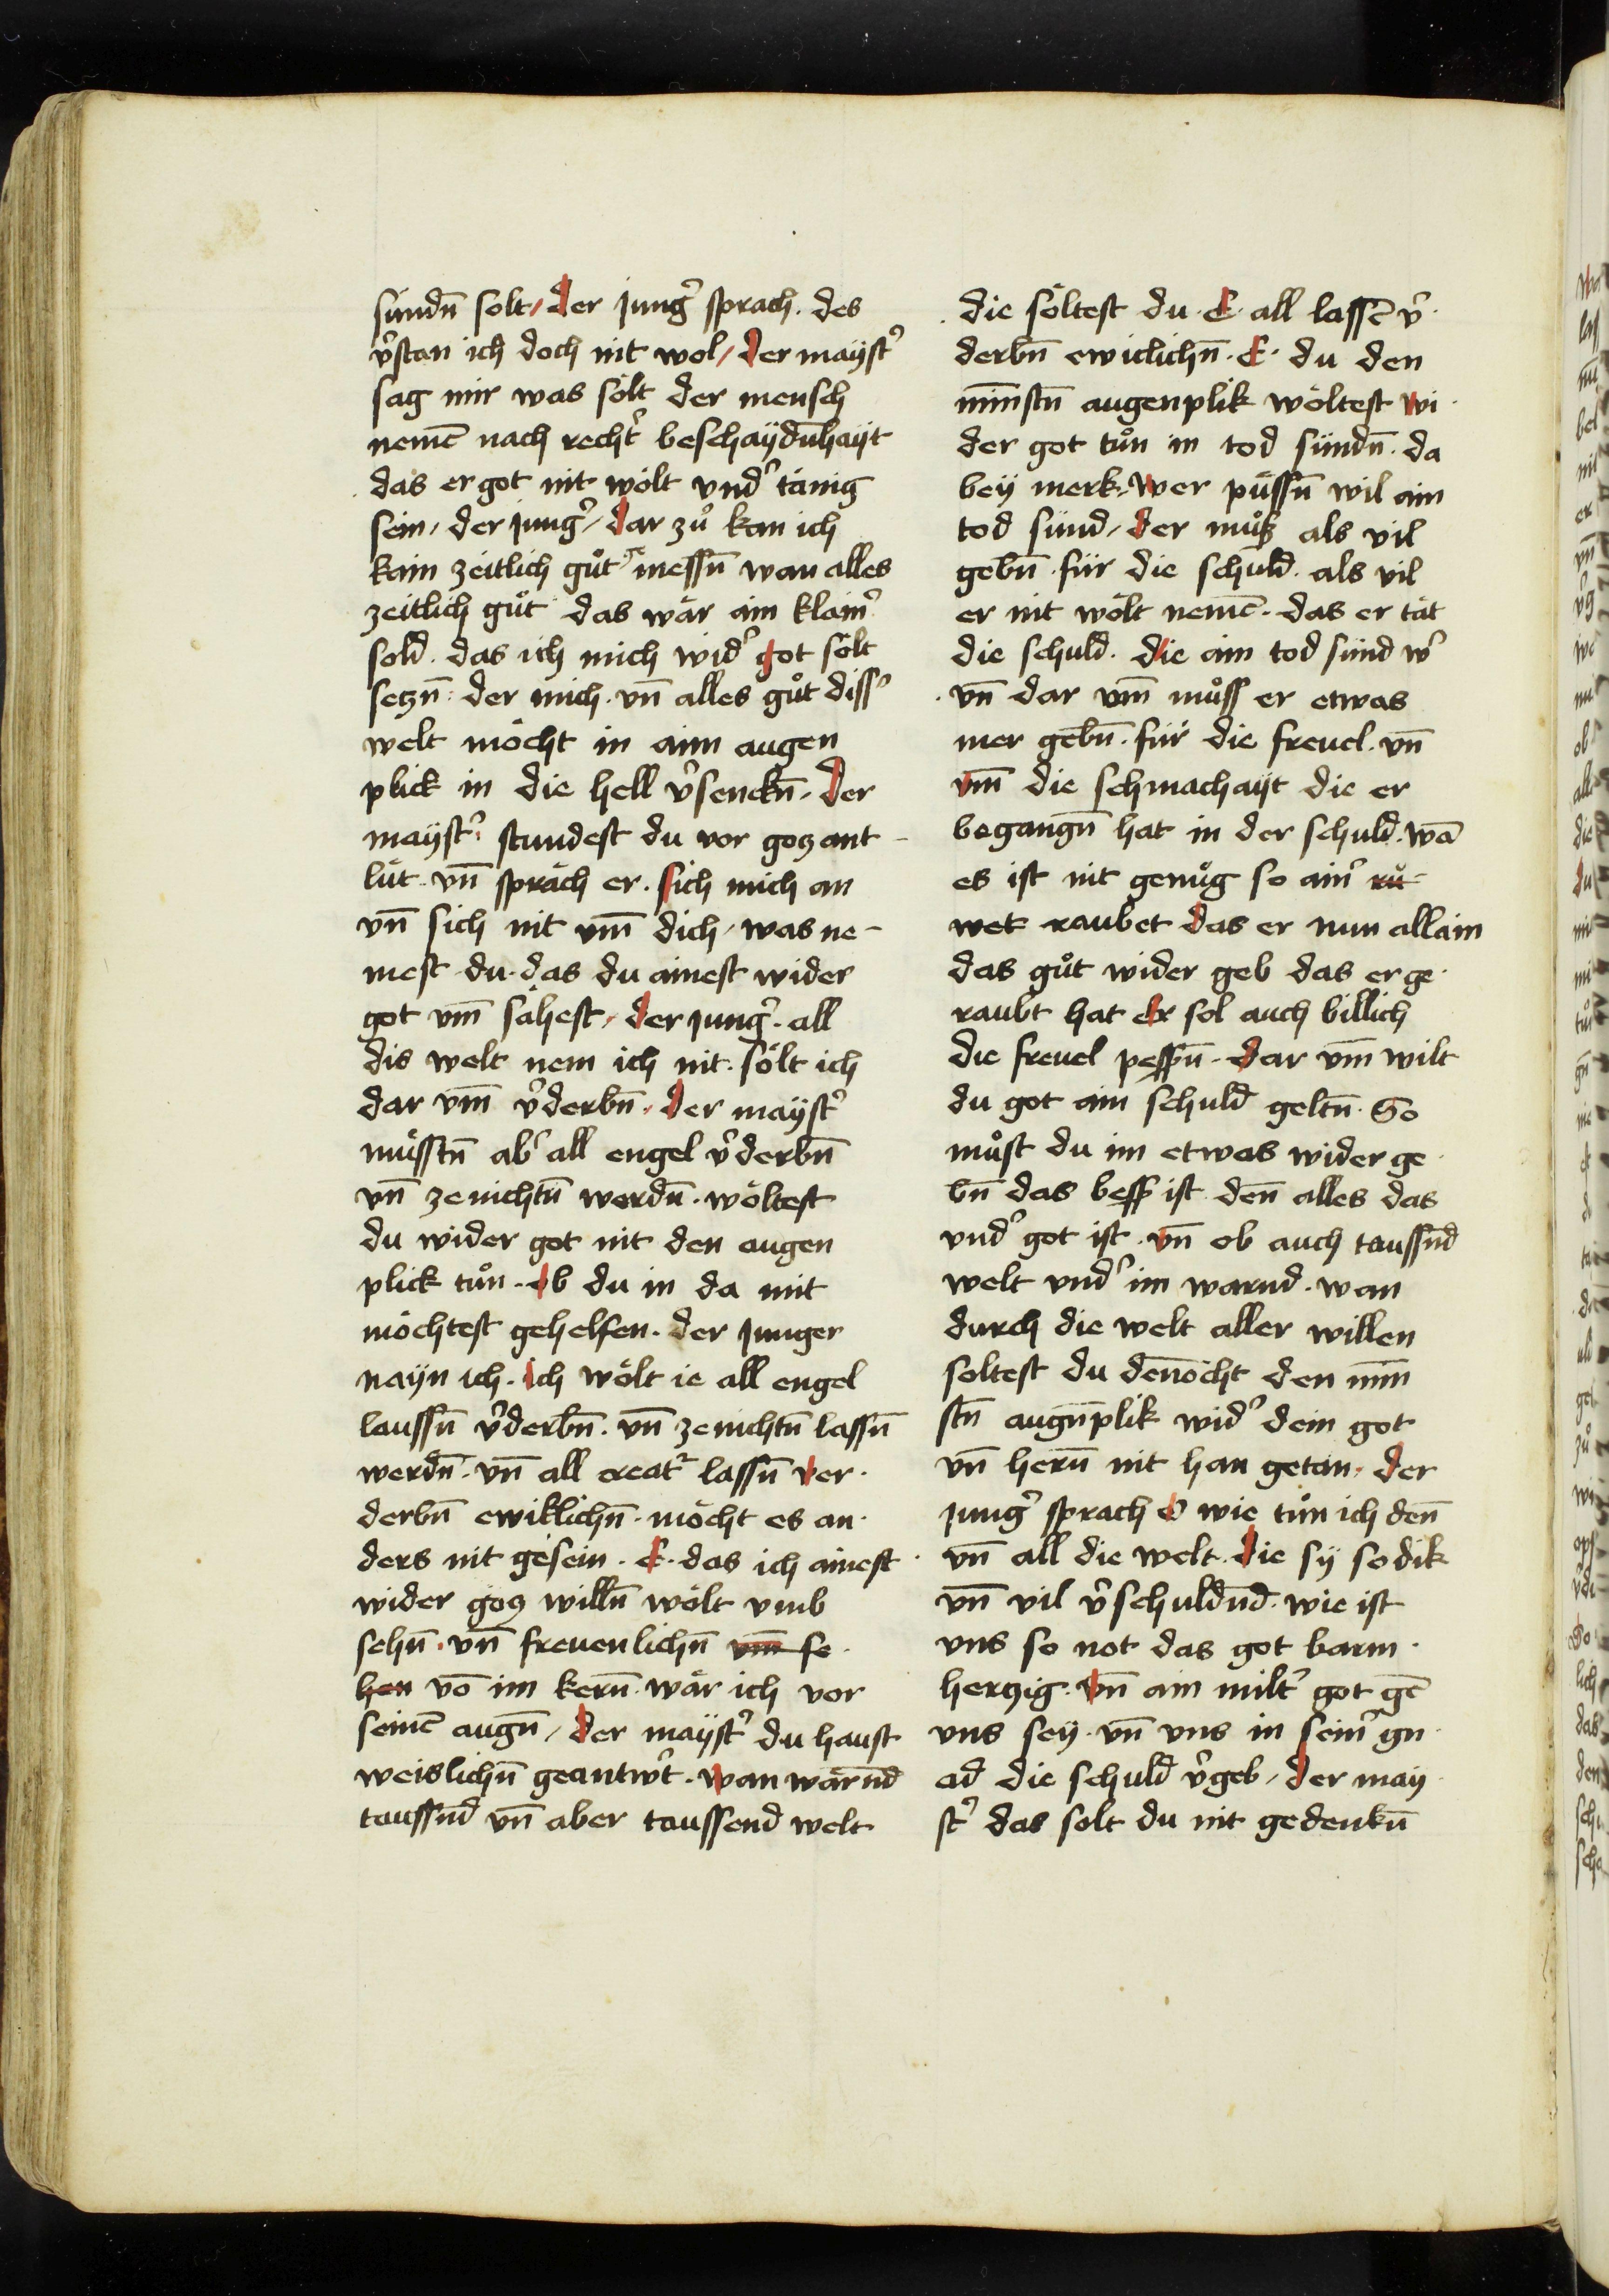 sündn̄ solt / der jungʼ sprach · des
vʼstan ich doch nit wol / der maÿstʼ
sag mir was sölt der mensch
nemē nach rechtʼ beschaÿdn̄haÿt
das er got nit wölt vndʼ tänig
sein / der jungʼ / dar zů kan ich
kain zeitlich gůt messn̄ wan alles
zeitlich gůt das wär ain klainʼ
sold · das ich mich widʼ got sölt
seczn̄ : der mich · vn̄ alles gůt dissʼ
welt möcht in aim augen
plick in die hell vʼsenckn̄ · der
maÿstʼ : stundest du vor gocz ant
lüt · vn̄ spräch er · sich mich an
vn̄ sich nit vm̄ dich / was ne-
mest du · das du ainest wider
got vm̄ sähest / der jungʼ · all
dis welt nem ich nit · sölt ich
dar vm̄ vʼderbn̄ · der maÿstʼ
müsstn̄ abʼ all engel vʼderbn̄
vn̄ ze nichtn̄ werdn̄ · wöltest
du wider got nit den augen
plick tůn · ob du in da mit
möchtest gehelfen · der junger
naÿn ich · ich wölt ie all engel
laussn̄ vʼderbn̄ · vn̄ ze nichtn̄ lassn̄
werdn̄ · vn̄ all creatʼ lassn̄ ver ·
derbn̄ ewiklichn̄ · möcht es an ·
ders nit gesein · E · das ich ainest
wider gocz willn̄ wölt vmb
sehn̄ · vn̄ freuenlichn̄ vm̄ se ·
hen vō im kern̄ · wär ich vor
seinē augn̄ / der maÿstʼ du haust
weislichn̄ geantwʼt · wan wärn̄d
taussn̄d vn̄ aber taussend welt
die söltest du · E · all lassē vʼ ·
derbn̄ ewiclichn̄ · E · du den
mīnstn̄ augenplik wöltest wi ·
der got tůn in tod sündn̄ · da
beÿ merk · wer püssn̄ wil ain
tod sünd / der můß als vil
gebn̄ · für die schuld · als vil
er nit wölt nemē · das er tät
die schuld · die ain tod sünd wʼ
vn̄ dar vm̄ můss er etwas
mer gebn̄ · für die freuel · vn̄
vm̄ die schmachaÿt die er
begangn̄ hat in der schuld · wā
es ist nit genůg so ainʼ rů
wet raubet das er nun allain
das gůt wider geb das er ge ·
raubt hat er sol auch billich
die freuel pessn̄ · dar vm̄ wilt
du got ain schuld geltn̄ · So
můst du im etwas wider ge ·
bn̄ das bessʼ ist den̄ alles das
vndʼ got ist · vn̄ ob auch taussn̄d
welt vndʼ im warnd · wan
durch die welt aller willen
soltest du den̄ocht den mīn
stn̄ augn̄plik widʼ dein got
vn̄ hern̄ nit han getan · der
jungʼ sprach o wie tůn ich den̄
vn̄ all die welt · die sÿ so dik
vn̄ vil vʼschuldn̄d · wie ist
vns so not das got barm ·
herczig · vn̄ ain miltʼ got gē
vns seÿ · vn̄ vns in seinʼ gn ·
ad die schuld vʼgeb / der maÿ
stʼ das solt du nit gedenkn̄